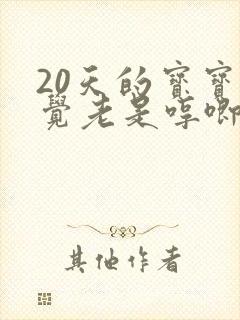 20天的宝寶
覺老是哼唧
其他作者